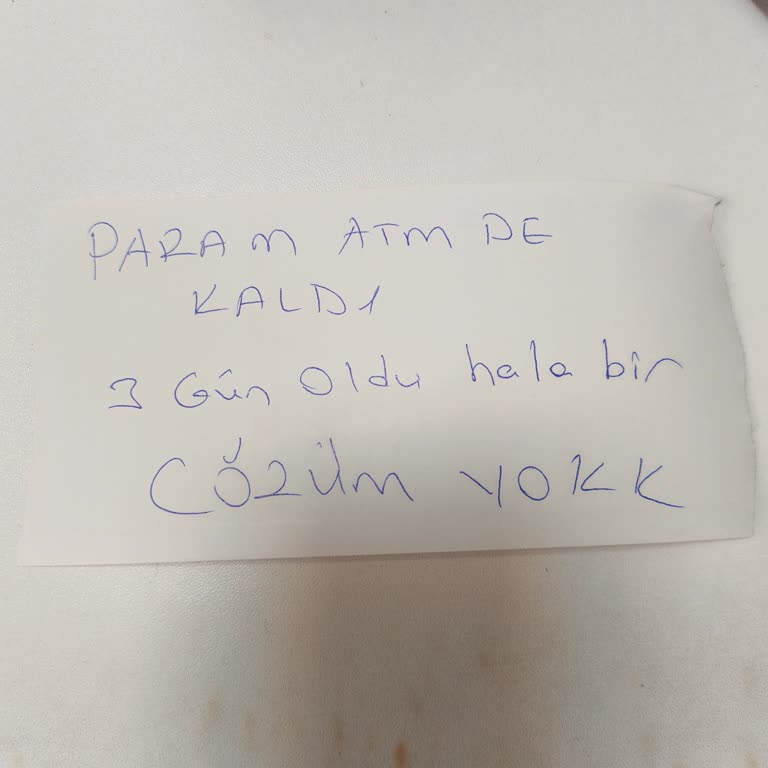 PARAM ATM DE
KALDI
3 Gün Oldu hala bir
CÖZÜM YOKK